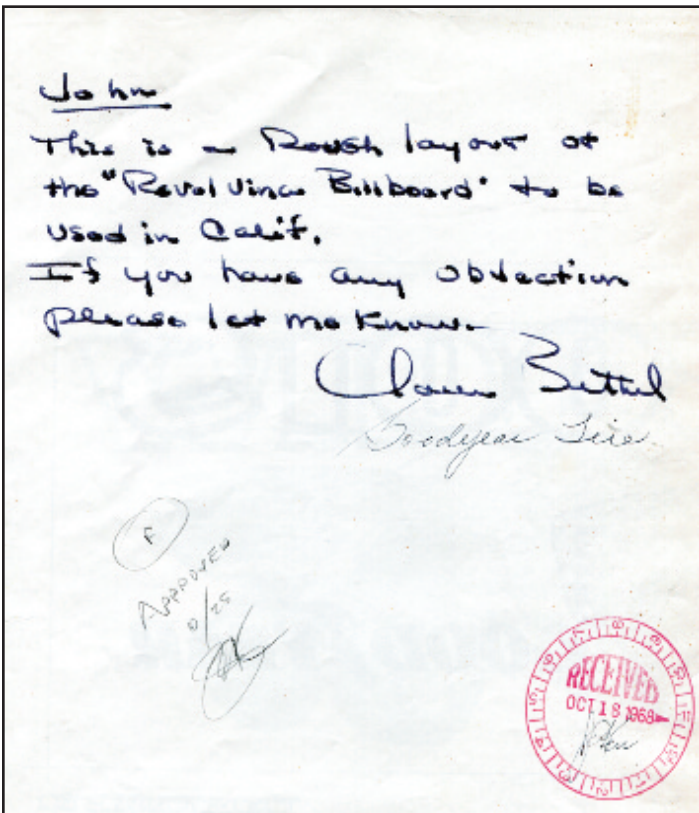 John
This is a Rough layout of
the "Revolving Billboard" to be
used in Calif.
If you have any objection
please let me know.
Bethel
Goodyear Tire
F
APPROVED
RECEIVED
OCT 18 1968